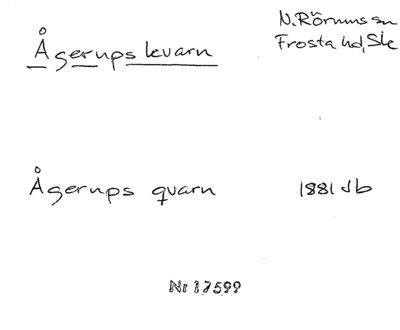 Ågerups kvarn
N. Rörums sn
Frosta hd, Sk
Ågerups qvarn
1881 Jb
Nr 17599